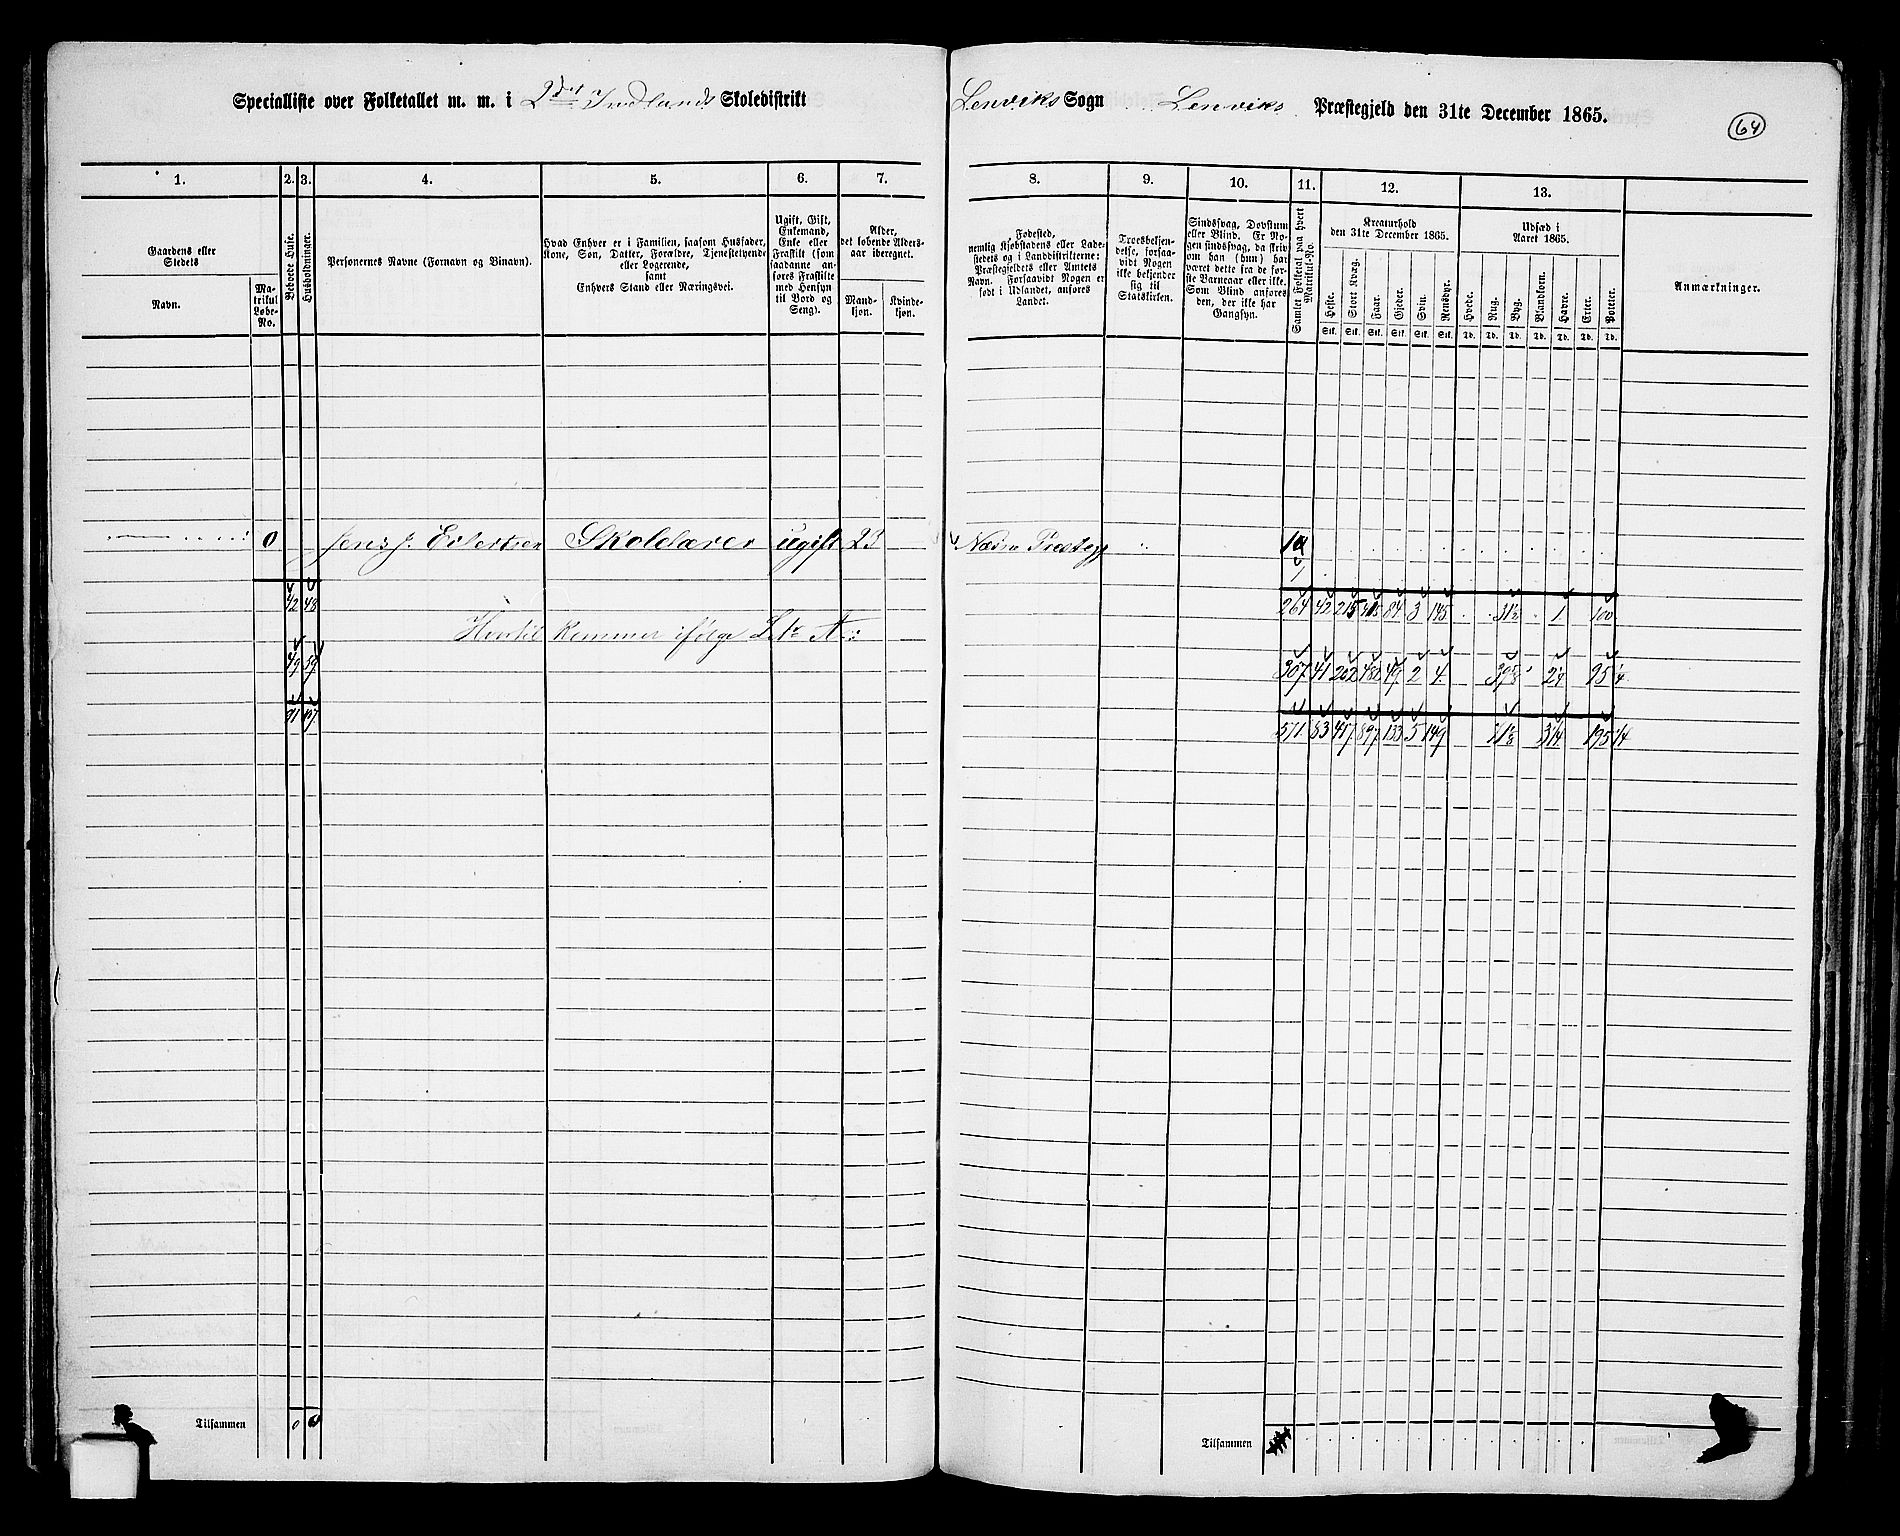 Specialliste over Folketallet m. m. i 2det Indlands Skoledistrikt Lenviks Sogn Lenviks Præstegjeld den 31te December 1865.
64
1. 2. 3. 4. 5. 6. 7. 8. 9. 10. 11. 12. 13.
Gaardens eller
Stedets
Navn.
Ma-
trikul
Løbe-
No.
Beboede Huse.
Husholdninger.
Personernes Navne (Fornavn og Binavn).
Hvad Enhver er i Familien, saasom Husfader,
Kone, Søn, Datter, Forældre, Tjenestetyende
eller Logerende,
samt
Enhvers Stand eller Næringsvei.
Ugift, Gift,
Enkemand,
Enke eller
Fraskilt (som
saadanne an-
føres Fraskilte
med Hensyn
til Bord og
Seng).
Alder,
det løbende Alders-
aar iberegnet.
Mand-
kjøn.
Kvinde-
kjøn.
Fødested,
nemlig Kjøbstadens eller Lade-
stedets og i Landdistrikterne:
Præstegjeldets eller Amtets
Navn. Forsaavidt Nogen er
født i Udlandet, anføres
Landet.
Troesbekjen-
delse, forsaa-
vidt Nogen
ikke bekjender
sig til
Statskirken.
Sindssvag, Døvstum
eller Blind. Er No-
gen sindssvag, da skriv
om han (hun) har
været dette fra de før-
ste Barneaar eller ikke.
Som Blind anføres
den, der ikke har
Gangsyn.
Samlet Folketal paa hvert
Matrikul-No.
Kreaturhold
den 31te December 1865.
Heste.
Stort Kvæg.
Faar.
Gjeder.
Svin.
Rensdyr.
Stk. Stk. Stk. Stk. Stk. Stk.
Udsæd i
Aaret 1865.
Hvede.
Rug.
Byg.
Blandkorn.
Havre.
Erter.
Poteter.
Td. Td. Td. Td. Td. Td. Td.
Anmærkninger.
0 Jens J. Evertsen Skolelærer ugift 23
1
42 48 264 42 215 415 84 3 145 31½ 1 100
Hertil kommer ifølge Litr A:
49 59 307 41 202 482 49 2 4 2¼ 95 ¼
91 107 571 83 417 897 133 5 149 3¼ 195 ¼
Tilsammen 0 0
Tilsammen